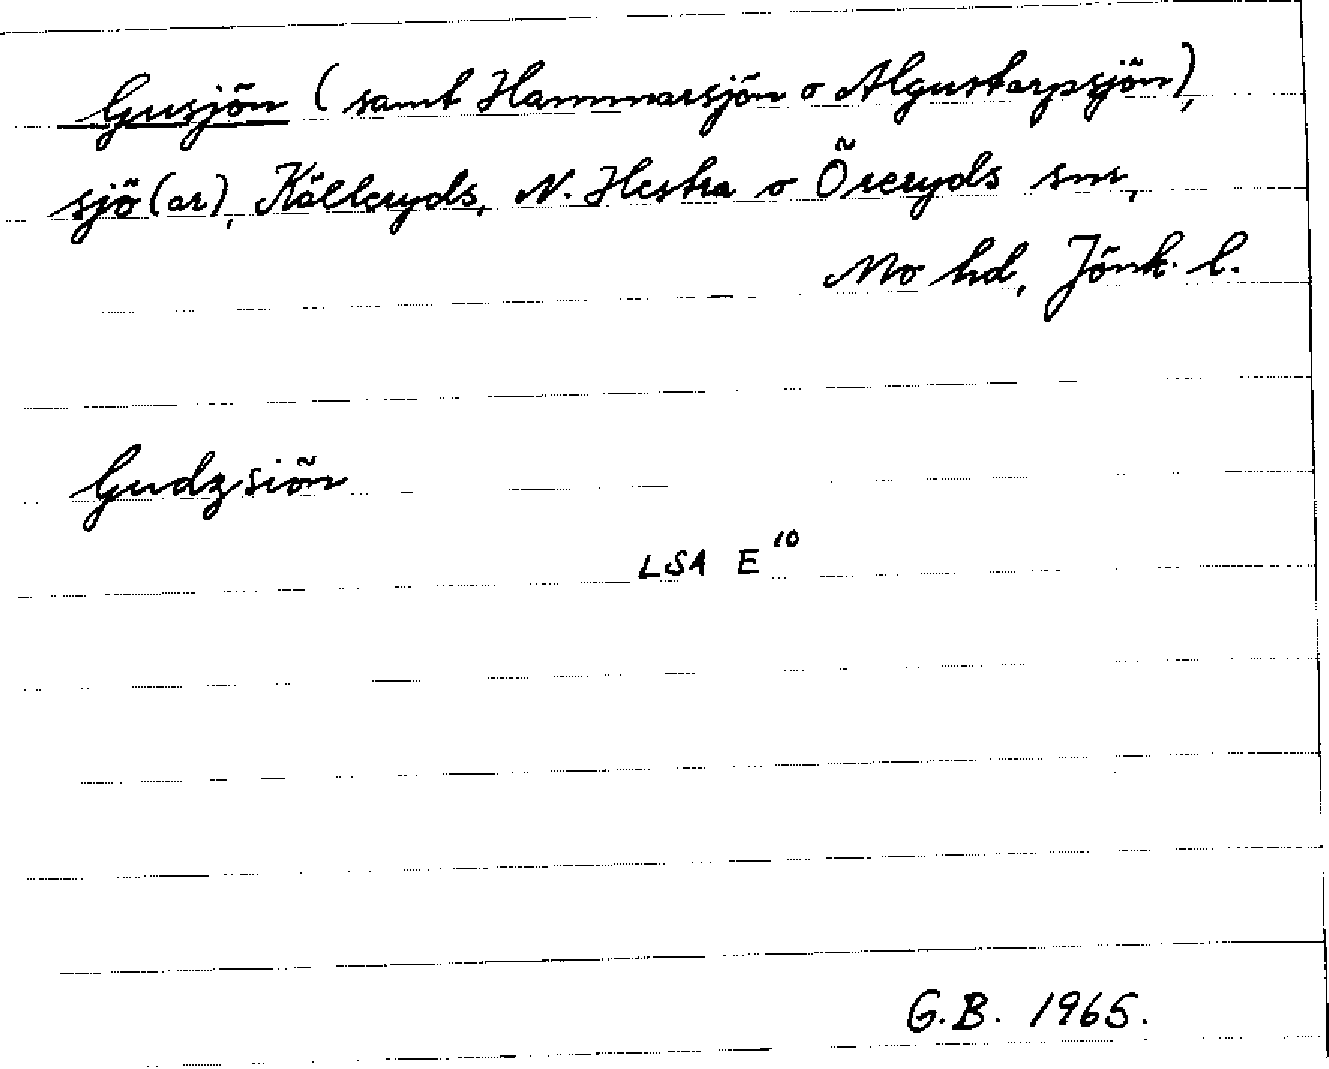 Gusjön (samt Hammarsjön o Algustorpsjön),
sjö(ar), Källeryds, N. Hestra o Öreryds snr,
Mo hd, Jönk. l.
Gudzsiön
LSA E¹⁰
G.B. 1965.